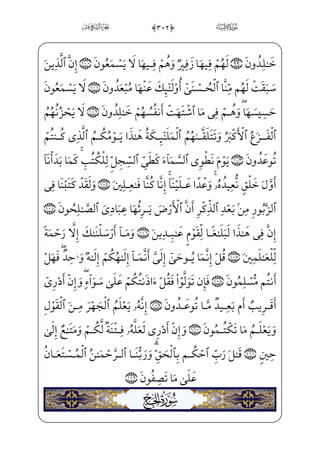 خَٰلِدُونَ ۝٩٩ لَهُمْ فِيهَا زَفِيرٌ وَهُمْ فِيهَا لَا يَسْمَعُونَ ۝١٠٠ إِنَّ ٱلَّذِينَ
سَبَقَتْ لَهُم مِّنَّا ٱلْحُسْنَىٰٓ أُو۟لَٰٓئِكَ عَنْهَا مُبْعَدُونَ ۝١٠١ لَا يَسْمَعُونَ
حَسِيسَهَا ۖ وَهُمْ فِى مَا ٱشْتَهَتْ أَنفُسُهُمْ خَٰلِدُونَ ۝١٠٢ لَا يَحْزُنُهُمُ
ٱلْفَزَعُ ٱلْأَكْبَرُ وَتَتَلَقَّىٰهُمُ ٱلْمَلَٰٓئِكَةُ هَٰذَا يَوْمُكُمُ ٱلَّذِى كُنتُمْ
تُوعَدُونَ ۝١٠٣ يَوْمَ نَطْوِى ٱلسَّمَآءَ كَطَىِّ ٱلسِّجِلِّ لِلْكُتُبِ ۚ كَمَا بَدَأْنَآ
أَوَّلَ خَلْقٍ نُّعِيدُهُۥ ۚ وَعْدًا عَلَيْنَآ ۚ إِنَّا كُنَّا فَٰعِلِينَ ۝١٠٤ وَلَقَدْ كَتَبْنَا فِى
ٱلزَّبُورِ مِنۢ بَعْدِ ٱلذِّكْرِ أَنَّ ٱلْأَرْضَ يَرِثُهَا عِبَادِىَ ٱلصَّٰلِحُونَ ۝١٠٥
إِنَّ فِى هَٰذَا لَبَلَٰغًا لِّقَوْمٍ عَٰبِدِينَ ۝١٠٦ وَمَآ أَرْسَلْنَٰكَ إِلَّا رَحْمَةً
لِّلْعَٰلَمِينَ ۝١٠٧ قُلْ إِنَّمَا يُوحَىٰٓ إِلَىَّ أَنَّمَآ إِلَٰهُكُمْ إِلَٰهٌ وَٰحِدٌ ۖ فَهَلْ
أَنتُم مُّسْلِمُونَ ۝١٠٨ فَإِن تَوَلَّوْا۟ فَقُلْ ءَاذَنتُكُمْ عَلَىٰ سَوَآءٍ ۖ وَإِنْ أَدْرِىٓ
أَقَرِيبٌ أَم بَعِيدٌ مَّا تُوعَدُونَ ۝١٠٩ إِنَّهُۥ يَعْلَمُ ٱلْجَهْرَ مِنَ ٱلْقَوْلِ
وَيَعْلَمُ مَا تَكْتُمُونَ ۝١١٠ وَإِنْ أَدْرِى لَعَلَّهُۥ فِتْنَةٌ لَّكُمْ وَمَتَٰعٌ إِلَىٰ
حِينٍ ۝١١١ قَٰلَ رَبِّ ٱحْكُم بِٱلْحَقِّ ۗ وَرَبُّنَا ٱلرَّحْمَٰنُ ٱلْمُسْتَعَانُ
عَلَىٰ مَا تَصِفُونَ ۝١١٢